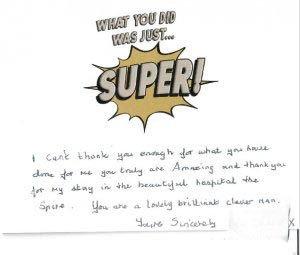 WHAT YOU DID
WAS JUST...
SUPER!
I can't thank you enough for what you have
done for me you truly are Amazing and thankyou
for my stay in the beautiful hospital the
Spire. You are a lovely brilliant clever man.
Yours Sincerely
X